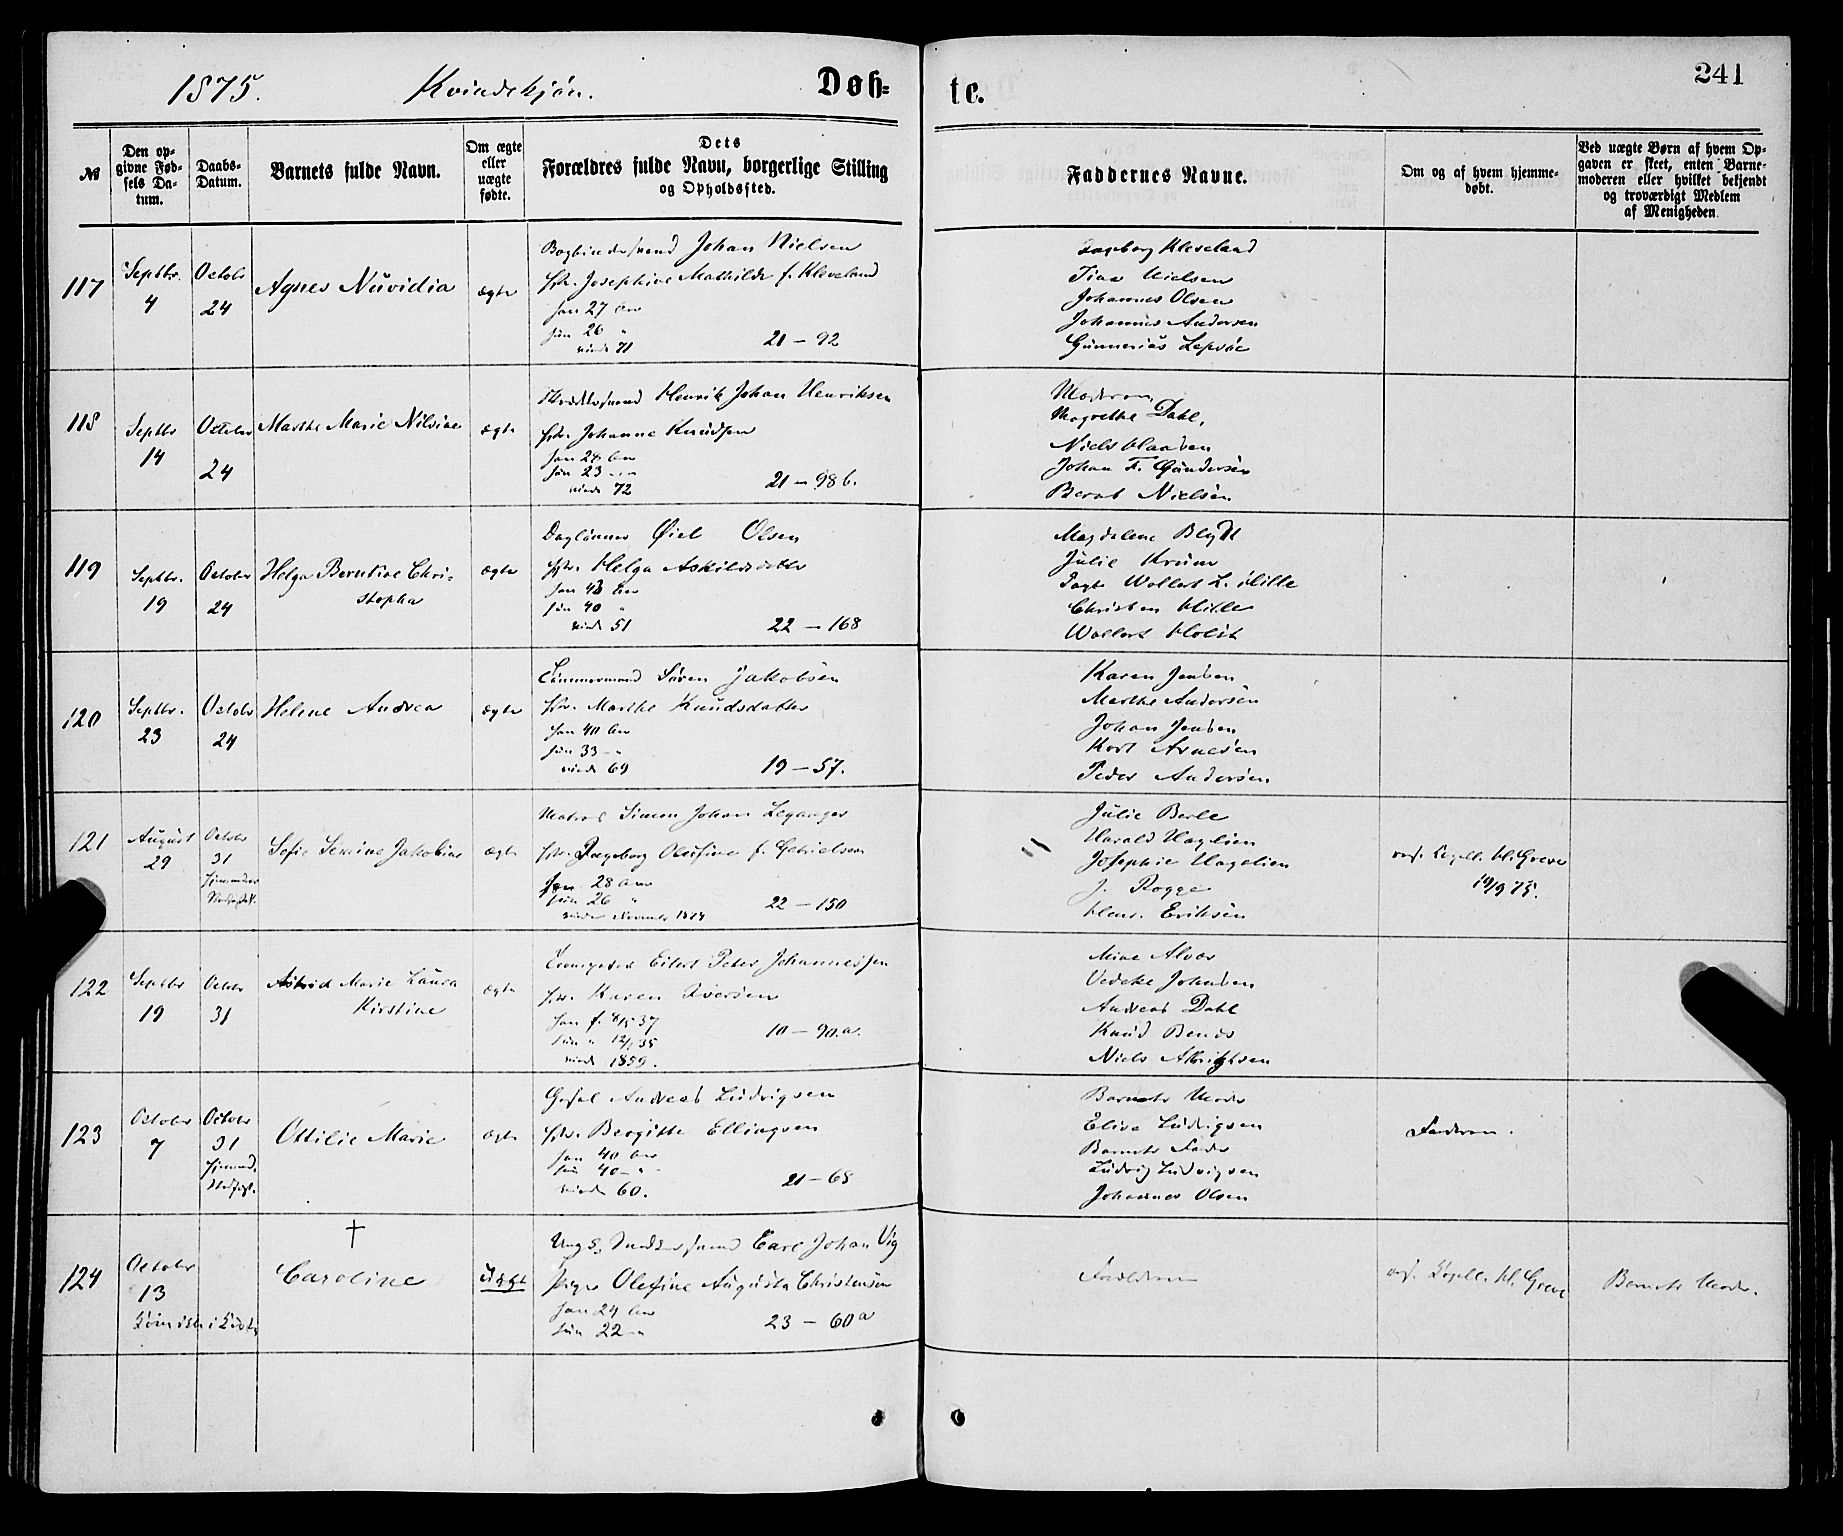 241
1875. Kvindekjön. Døb= te.
№
Den op=
givne Fød=
sels Da=
tum.
Daabs=
Datum.
Barnets fulde Navn.
Om ægte
eller
uægte
fødte.
Dets
Forældres fulde Navn, borgerlige Stilling
og Opholdssted.
Faddernes Navne.
Om og af hvem hjemme=
døbt.
Ved uægte Børn af hvem Op=
gaven er skeet, enten Barne=
moderen eller hvilket bekjendt
og troværdigt Medlem
af Menigheden.
117
Septbr.
4
Octobr
24
Agnes Nüvidia
ægte
Bogbindersvend Johan Nielsen
Josephine Mathilde f. Kleveland
han 27 Aar
hün 26 "
viede 71
21 – 92
Ingeborg Kleveland
Tina Nielsen
Johannes Olsen
Johannes Andersen
Günnerius Lepsöe
118
Septbr
14
Octobr
24
Marthe Marie Nilsine
ægte
Henrik Johan Henriksen
Johanne Knudsen
han 28 Aar
hün 23
viede 72
21 – 98 b.
Moderen
Magrethe Dahl,
Niels
Johan F. Gundersen
Bernt Nielsen
119
Septbr.
19
Octobr
24
Helga Berntine Chri-
stopha
ægte
Daglönner Öiel Olsen
Helga Askildsdatter
han 43 Aar
hün 40 "
viede 51
22 – 168
Magdalene Blydt
Julie Krüm
Wollert L. Hille
Christen Hille
Wollert
120
Septbr.
23
Octobr
24
Helene Andrea
ægte
Tömmermand Sören Jakobsen
Marthe Knudsdatter
han 40 Aar
hün 33 – "
viede 69
19 – 57.
Karen Jensen
Marthe Andersen
Johan Jensen
Kort Arnesen
Peder Andersen
121
August
29
Octobr
31
Sofie Semine Jakobine
ægte
Matros Simon Johan Leganger
Ingeborg Olufine f. Gabrielsen
han 28 Aar
hün 26 "
viede November 1874
22 – 150
Julie Berle
Harald Hagelien
Josephie Hagelien
J. Rogge
Hans. Eriksen
Kapell. Kl. Greve
10/9 75.
122
Septbr
19
Octobr
31
Astrid Marie Laura
Kirstine
ægte
Eilert Peter Johannessen
Karen Iversen
han f. 8/5 37
hün " 12/1 35
viede 1859.
10 – 90.a.
Mine Alver
Vedeke Johnsen
Andreas Dahl
Knud Bends
Niels Albrigtsen
123
Octobr
7
Octobr
31
Ottilie Marie
ægte
Andreas Ludvigsen
Bergitte Ellingsen
han 40 Aar
hün 40 – "
viede 60.
21 – 68
Barnets Moder
Elisa Ludvigsen
Barnets Fader
Ludvig Ludvigsen
Johannes Olsen
Faderen.
124
Octobr
13
†
Caroline
Uægte
Ungk. Snedkersvend Carl Johan Vig
Pigen Olefine Augusta Christensen
han 24 Aar
hün 22 – "
23 – 60a
Forældrene
Kapell. Kl. Greve
Barnets Moder.